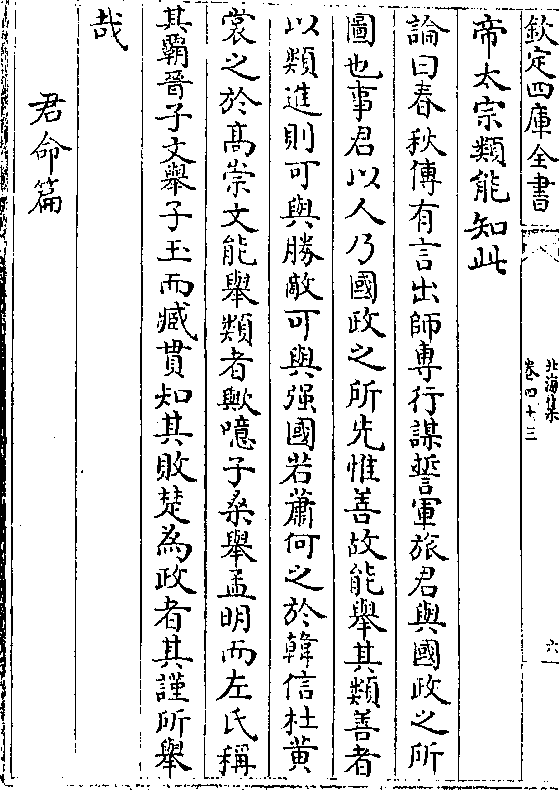 欽定四庫全書
北海集
卷四十三
六
帝太宗類能知此
論曰春秋傳有言出師專行謀誓軍旅君與國政之所
圖也事君以人乃國政之所先惟善故能舉其類善者
以類進則可與勝敵可與强國若蕭何之於韓信杜黄
裳之於髙崇文能舉類者歟噫子桑舉孟明而左氏稱
其霸晉子文舉子玉而臧賈知其敗楚為政者其謹所舉
哉
君命篇